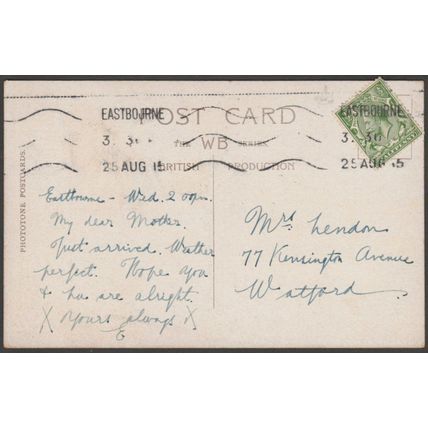 EASTBOURNE
3. 30
25 AUG 15
EASTBOURNE
3. 30
25 AUG 15
POST CARD
THE WB SERIES
BRITISH PRODUCTION
PHOTOTONE POSTCARDS.
Eastbourne - Wed. 2.00pm.
My dear Mother.
Just arrived. Weather
perfect. Hope you
& are alright.
X Yours always X
E
Mrs Lendon
77 Kensington Avenue
Watford.